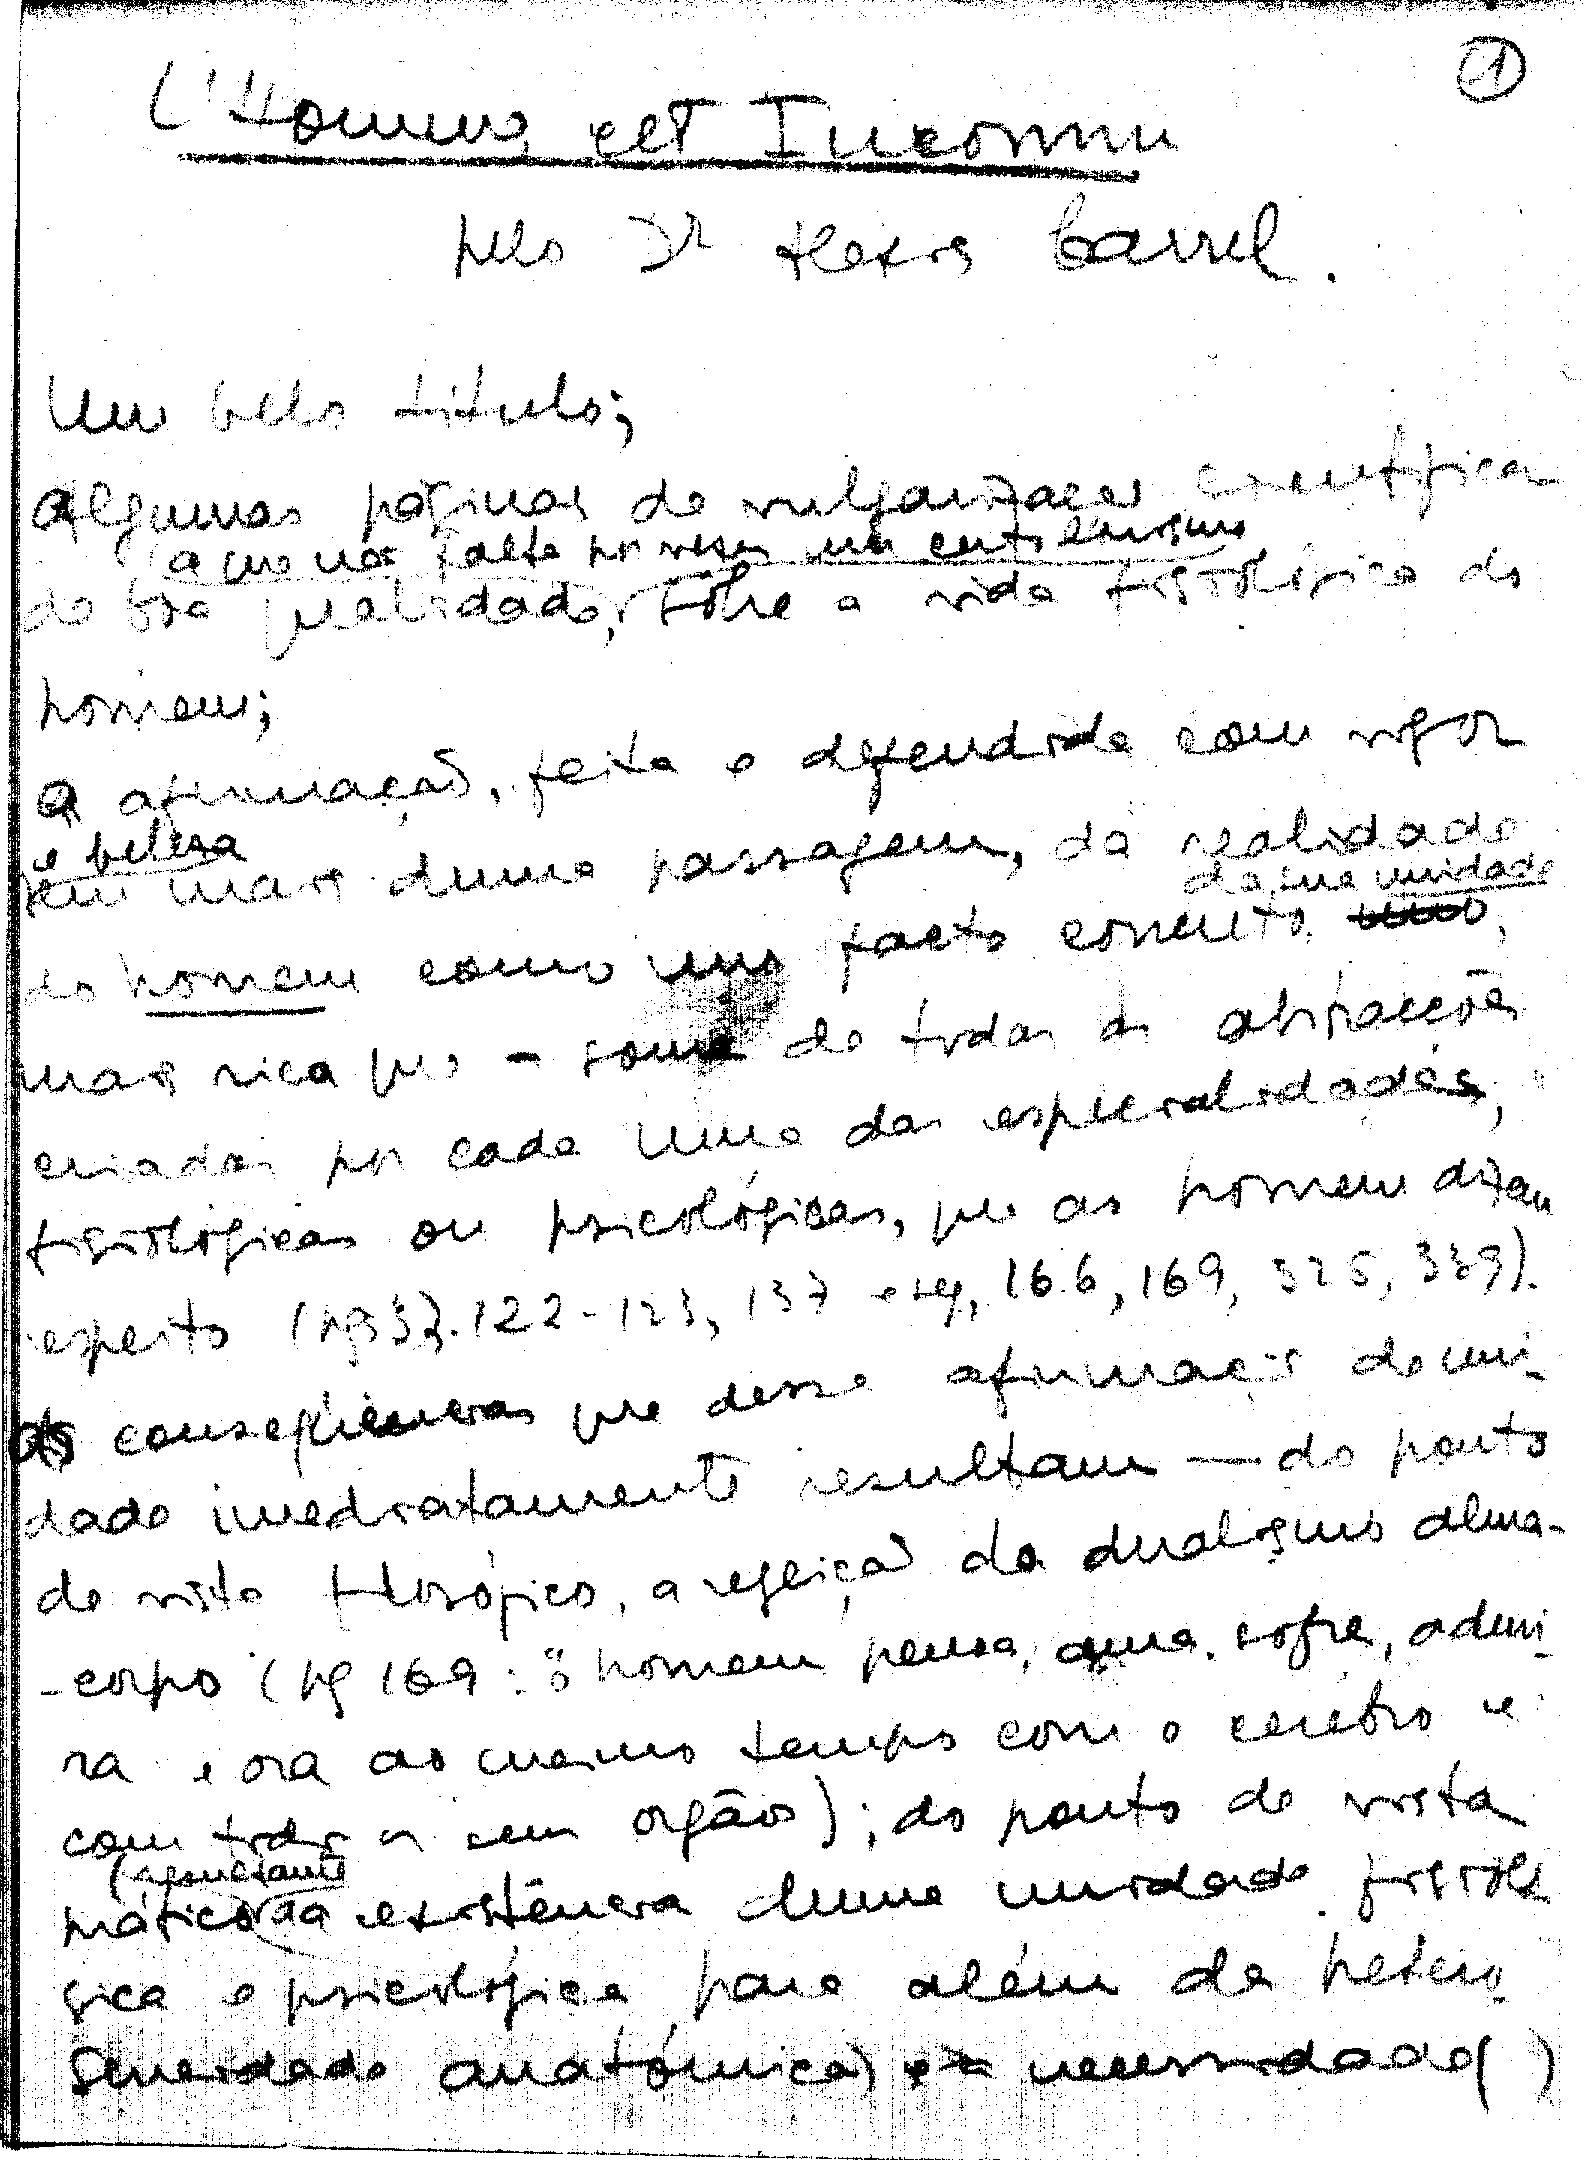 ①
L'Homme, cet Inconnu
pelo Dr Alexis Carrel.
Um belo titulo;
algumas páginas de vulgarização científica
a que não falta por vezes um certo lirismo
de boa qualidade, sôbre a vida fisiológica do
homem;
a afirmação, feita e defendida com vigor
e beleza
em mais duma passagem, da realidade
da sua unidade
do homem como um facto concreto,
mais rica que a soma de todas as abstracções
criadas por cada uma das especialidades,
fisiológicas ou psicológicas, que ao homem dizem
respeito (pgs 3, 122-123, 137 e seg, 166, 169, 325, 339).
As conseqüências que dessa afirmação de uni-
dade imediatamente resultam — do ponto
de vista filosófico, a rejeição do dualismo alma-
-corpo (pg 169: "o homem pensa, ama, sofre, admi-
ra e ora ao mesmo tempo com o cerebro e
com todos os seus orgãos); do ponto de vista
(resultante
prático da existência duma unidade fisioló
gica e psicológica para além da hetero-
geneidade anatómica) a necessidade( )